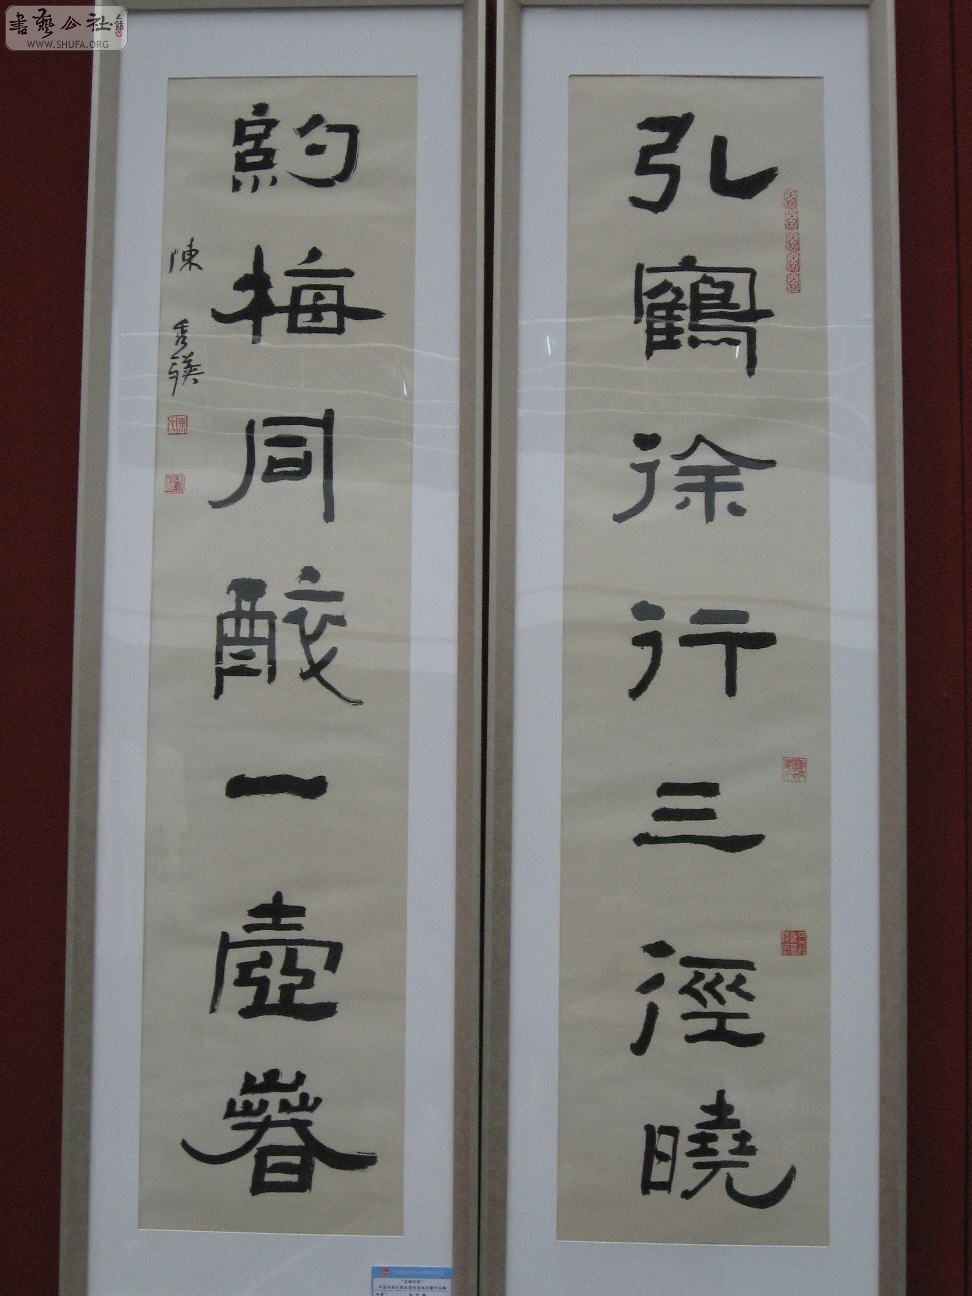 弘鶴徐行三徑曉
約梅同醉一壺春
陳秀
書藝公社
WWW.SHUFA.ORG